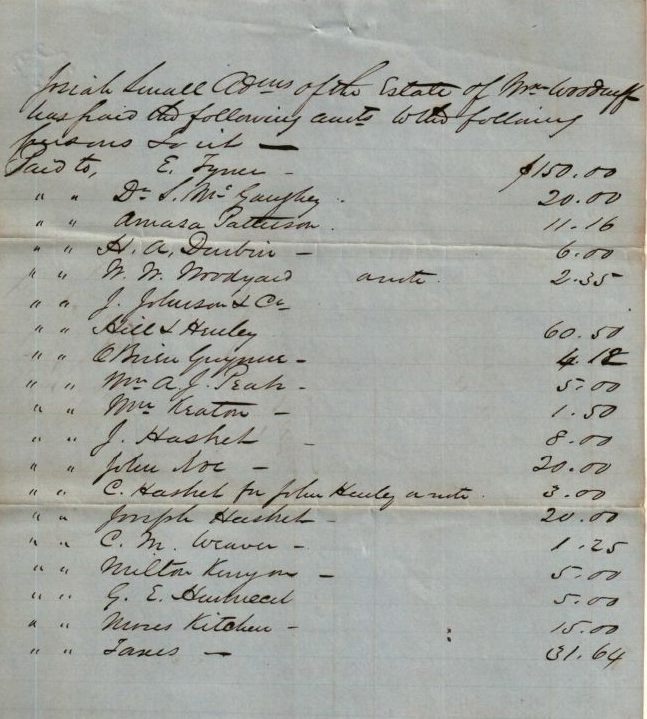 Josiah Small Adms of the Estate of Wm Woodruff
has paid the following amts to the following
persons to wit —
Paid to, E. Tyner - $150.00
" " Dr S. McGaughey . 20.00
" " Amasa Patterson . 11.16
" " H. A. Durbin - 6.00
" " W. W. Woodyard a note. 2.35
" " J. Johnson & Co
" " Hill & Henley 60.50
" " O'Brien Gwynne - 4.18
" " Mr A. J. Peak - 5.00
" " Mr Keaton - 1.50
" " J. Hasket - 8.00
" " John Noe - 20.00
" " C. Hasket for John Henley a note . 3.00
" " Joseph Hasket - 20.00
" " C. M. Weaver - 1.25
" " Milton Kenyon - 5.00
" " G. E. 5.00
" " Moses Kitchen - 15.00
" " Taxes — 31.64